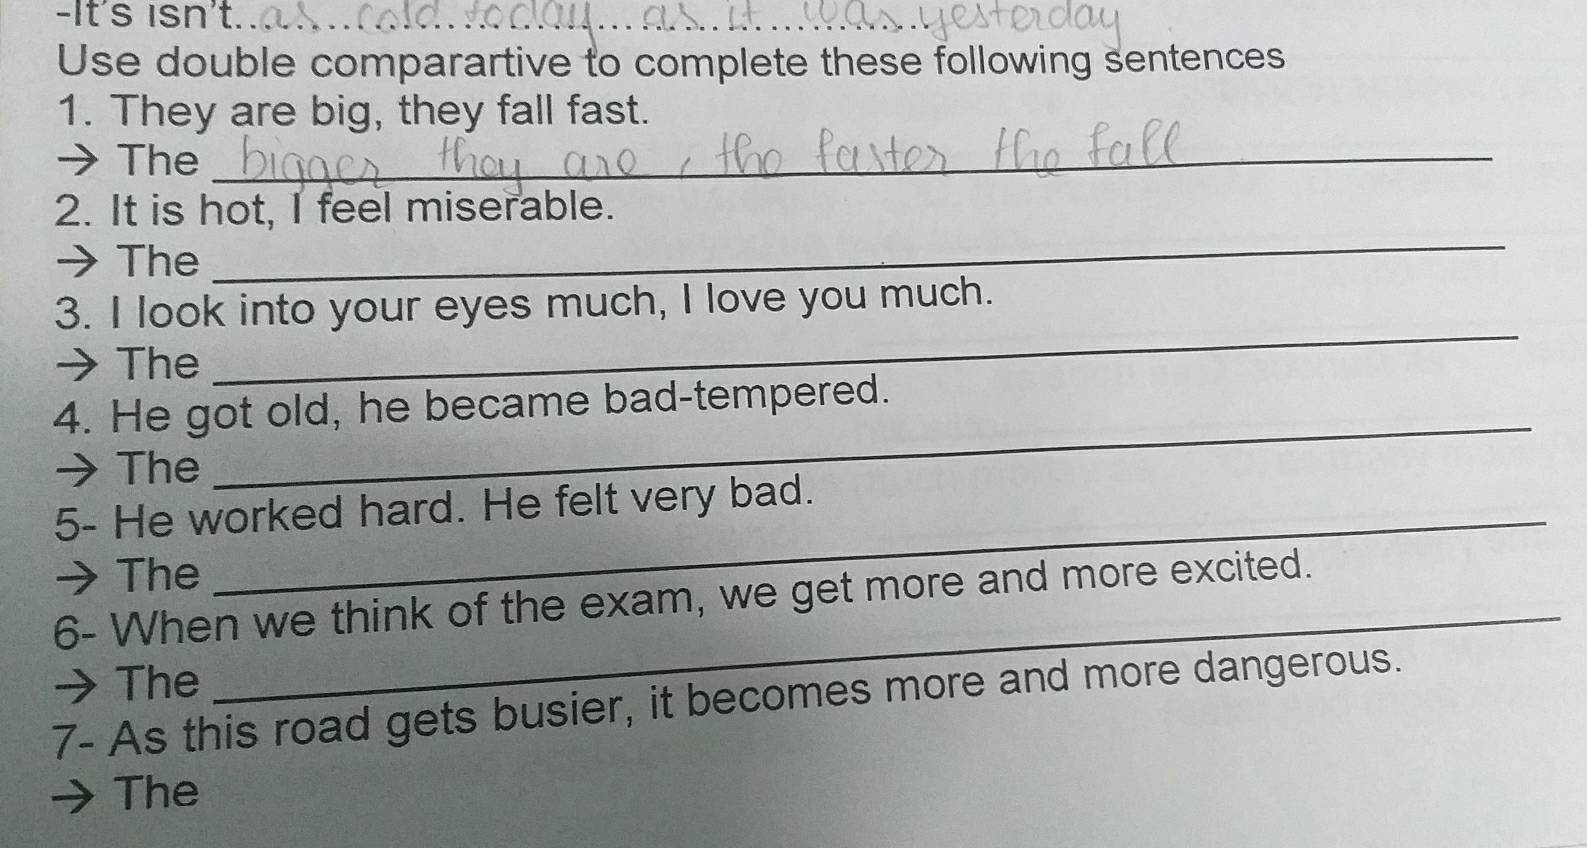 -It's isn't..as....cold..today....as..it...was.yesterday
Use double comparartive to complete these following sentences
1. They are big, they fall fast.
→ The bigger they are, the faster the fall
2. It is hot, I feel miserable.
→ The
3. I look into your eyes much, I love you much.
→ The
4. He got old, he became bad-tempered.
→ The
5- He worked hard. He felt very bad.
→ The
6- When we think of the exam, we get more and more excited.
→ The
7- As this road gets busier, it becomes more and more dangerous.
→ The